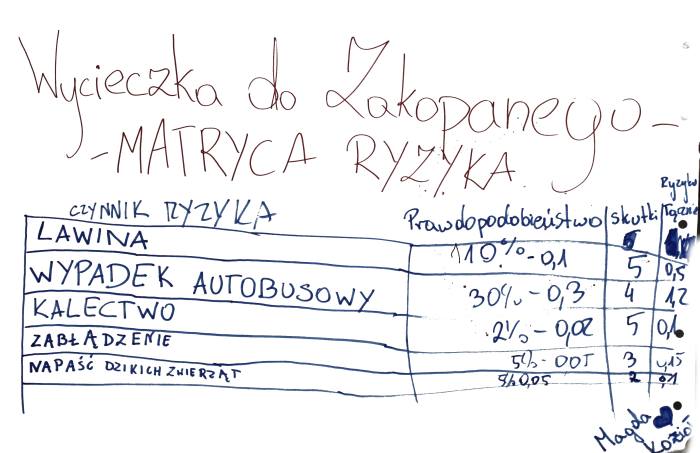 Wycieczka do Zakopanego-
-MATRYCA RYZYKA
CZYNNIK RYZYKA Prawdopodobieństwo skutki Ryzyko Łącznie
LAWINA 110% - 0,1 5 0,5
WYPADEK AUTOBUSOWY 30% - 0,3 4 12
KALECTWO 2% - 0,02 5 0,1
ZABŁĄDZENIE 5% - 005 3 0,15
NAPAŚĆ DZIKICH ZWIERZĄT 5% 0,05 2 0,1
Magda
Kozioł